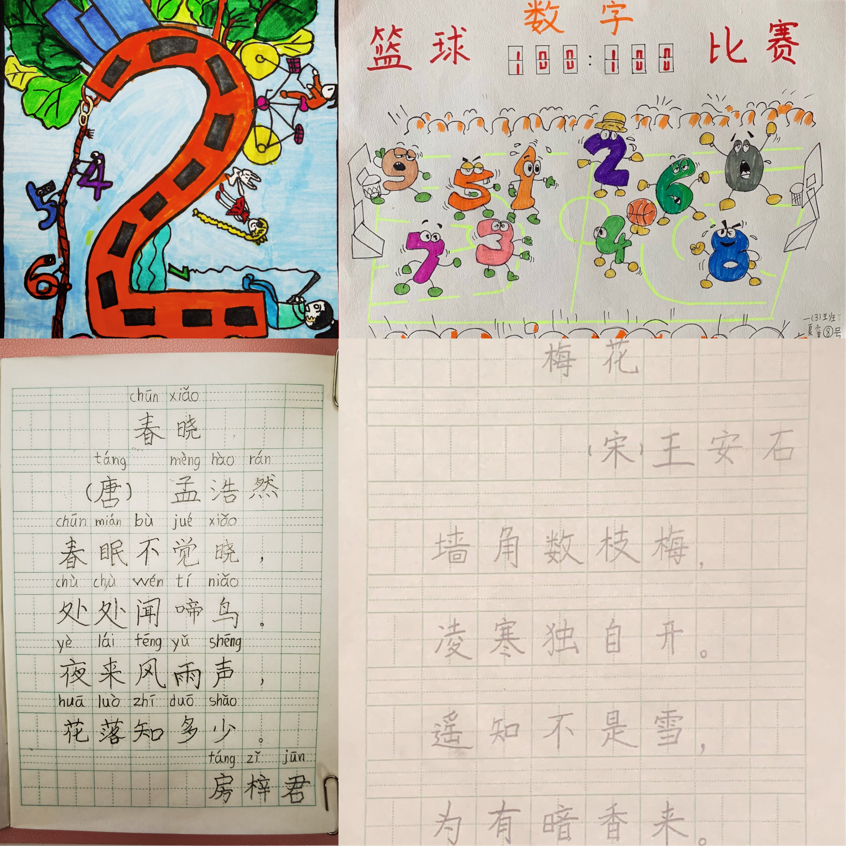 2
4
5
6
数字
篮球 100:100 比赛
9 5 1 2 6 0
7 3 4 8
一(3)班
chūn xiǎo
春晓
táng mèng hào rán
(唐) 孟浩然
chūn mián bù jué xiǎo
春眠不觉晓，
chù chù wén tí niǎo
处处闻啼鸟。
yè lái fēng yǔ shēng
夜来风雨声，
huā luò zhī duō shǎo
花落知多少。
fáng zǐ jūn
房梓君
梅花
(宋)王安石
墙角数枝梅，
凌寒独自开。
遥知不是雪，
为有暗香来。